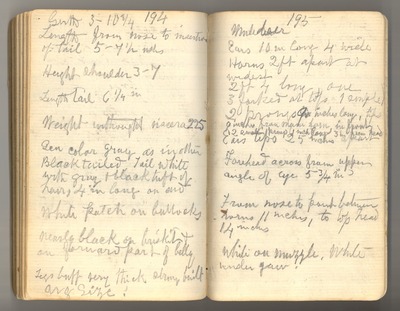 194
Girth 3-10 3/4
Length from nose to insertion
of tail 5-7 1/2 inches
Height shoulder 3-7
Length tail 6 1/4 in
Weight without viscera 225
Gen color gray as in other
Black tailed. Tail white
with gray & black tuft of
hairs 4 in long on end
White patch on buttocks
nearly black on brisket &
on forward part of belly
Legs buff very thick strong built
or size!
195
Mule deer
Ears 10 in long 4 wide
Horns 2 ft apart at
widest
2 ft 4 long one
3 forked at tips 1 single
20 prongs inches long, 
Ears 2 inches apart
Forehead across from upper
angle of eye 5 3/4 in
From nose to point between
horns 11 inches, to top head
14 inches
White on muzzle, White
under jaw!